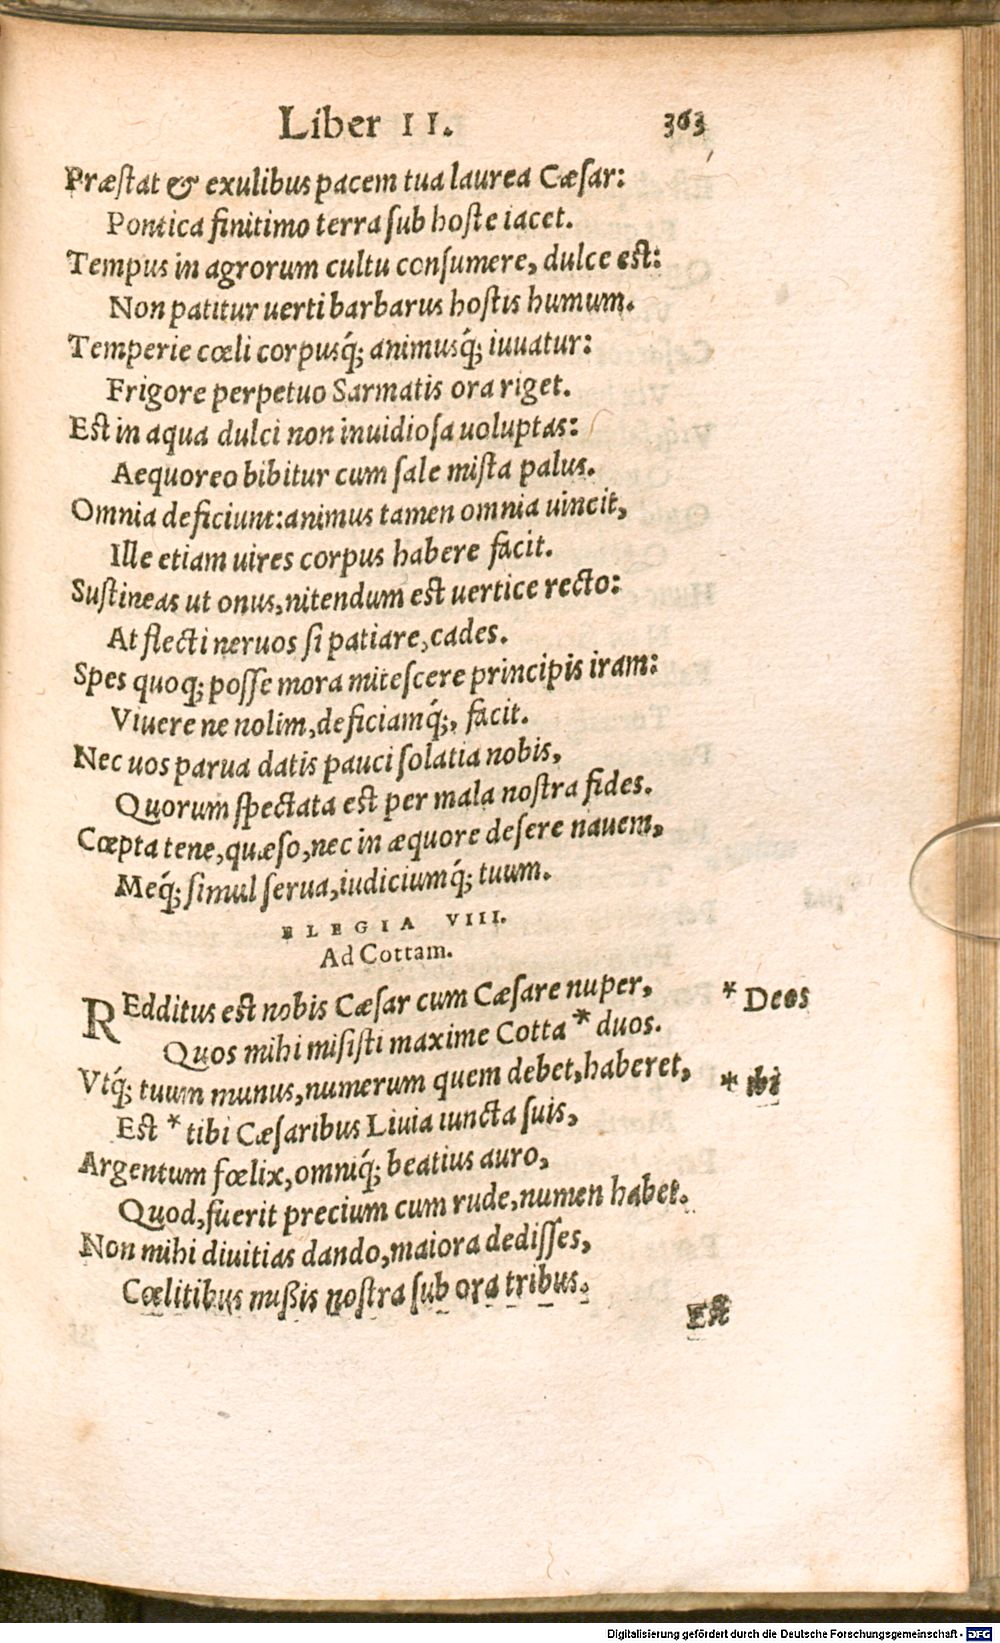 Liber II. 363
Præſtat & exulibus pacem tua laurea Cæſar:
Pontica finitimo terra ſub hoſte iacet.
Tempus in agrorum cultu conſumere, dulce eſt:
Non patitur uerti barbarus hoſtis humum.
Temperie cœli corpusq́; animusq́; iuuatur:
Frigore perpetuo Sarmatis ora riget.
Eſt in aqua dulci non inuidioſa uoluptas:
Aequoreo bibitur cum ſale miſta palus.
Omnia deficiunt: animus tamen omnia uincit,
Ille etiam uires corpus habere facit.
Suſtineas ut onus, nitendum eſt uertice recto:
At flecti neruos ſi patiare, cades.
Spes quoq; poſſe mora miteſcere principis iram:
Viuere ne nolim, deficiamq́;, facit.
Nec uos parua datis pauci ſolatia nobis,
Quorum ſpectata eſt per mala noſtra fides.
Cœpta tene, quæſo, nec in æquore deſere nauem,
Meq́; ſimul ſerua, iudiciumq́; tuum.
ELEGIA VIII.
Ad Cottam.
REdditus eſt nobis Cæſar cum Cæſare nuper, * Deos
Quos mihi miſiſti maxime Cotta * duos.
Vtq́; tuum munus, numerum quem debet, haberet, * ibi
Eſt * tibi Cæſaribus Liuia iuncta ſuis,
Argentum fœlix, omniq́; beatius auro,
Quod, fuerit precium cum rude, numen habet.
Non mihi diuitias dando, maiora dediſſes,
Cœlitibus mißis noſtra ſub ora tribus.
Eſt
Digitalisierung gefördert durch die Deutsche Forschungsgemeinschaft - DFG